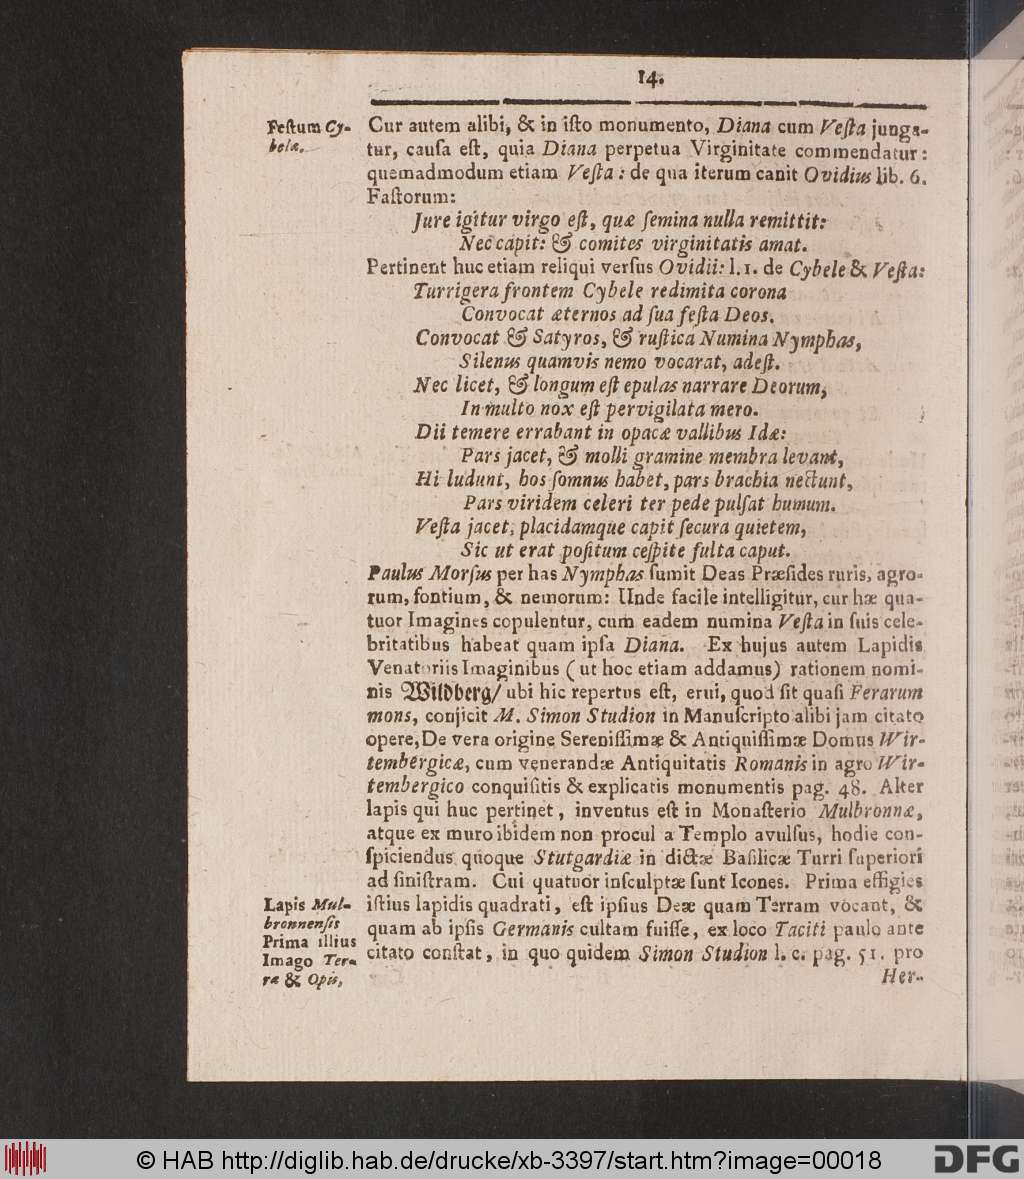 14.
Feſtum Cy-
belæ.
Cur autem alibi, & in iſto monumento, Diana cum Veſta junga-
tur, cauſa eſt, quia Diana perpetua Virginitate commendatur:
quemadmodum etiam Veſta: de qua iterum canit Ovidius lib. 6.
Faſtorum:
Jure igitur virgo eſt, quæ ſemina nulla remittit:
Nec capit: & comites virginitatis amat.
Pertinent huc etiam reliqui verſus Ovidii: l. 1. de Cybele & Veſta:
Turrigera frontem Cybele redimita corona
Convocat æternos ad ſua feſta Deos.
Convocat & Satyros, & ruſtica Numina Nymphas,
Silenus quamvis nemo vocarat, adeſt.
Nec licet, & longum eſt epulas narrare Deorum,
In multo nox eſt pervigilata mero.
Dii temere errabant in opacæ vallibus Idæ:
Pars jacet, & molli gramine membra levant,
Hi ludunt, hos ſomnus habet, pars brachia nectunt,
Pars viridem celeri ter pede pulſat humum.
Veſta jacet, placidamque capit ſecura quietem,
Sic ut erat poſitum ceſpite fulta caput.
Paulus Morſus per has Nymphas ſumit Deas Præſides ruris, agro-
rum, fontium, & nemorum: Unde facile intelligitur, cur hæ qua-
tuor Imagines copulentur, cum eadem numina Veſta in ſuis cele-
britatibus habeat quam ipſa Diana. Ex hujus autem Lapidis
Venatoriis Imaginibus (ut hoc etiam addamus) rationem nomi-
nis Wildberg/ ubi hic repertus eſt, erui, quod ſit quaſi Ferarum
mons, conjicit M. Simon Studion in Manuſcripto alibi jam citato
opere, De vera origine Sereniſſimæ & Antiquiſſimæ Domus Wir-
tembergicæ, cum venerandæ Antiquitatis Romanis in agro Wir-
tembergico conquiſitis & explicatis monumentis pag. 48. Alter
lapis qui huc pertinet, inventus eſt in Monaſterio Mulbronnæ,
atque ex muro ibidem non procul a Templo avulſus, hodie con-
ſpiciendus quoque Stutgardiæ in dictæ Baſilicæ Turri ſuperiori
ad ſiniſtram. Cui quatuor inſculptæ ſunt Icones. Prima effigies
Lapis Mul-
bronnenſis
Prima illius
Imago Ter-
ræ & Opis,
iſtius lapidis quadrati, eſt ipſius Deæ quam Terram vocant, &
quam ab ipſis Germanis cultam fuiſſe, ex loco Taciti paulo ante
citato conſtat, in quo quidem Simon Studion l. c. pag. 51. pro
Her-
© HAB http://diglib.hab.de/drucke/xb-3397/start.htm?image=00018
DFG